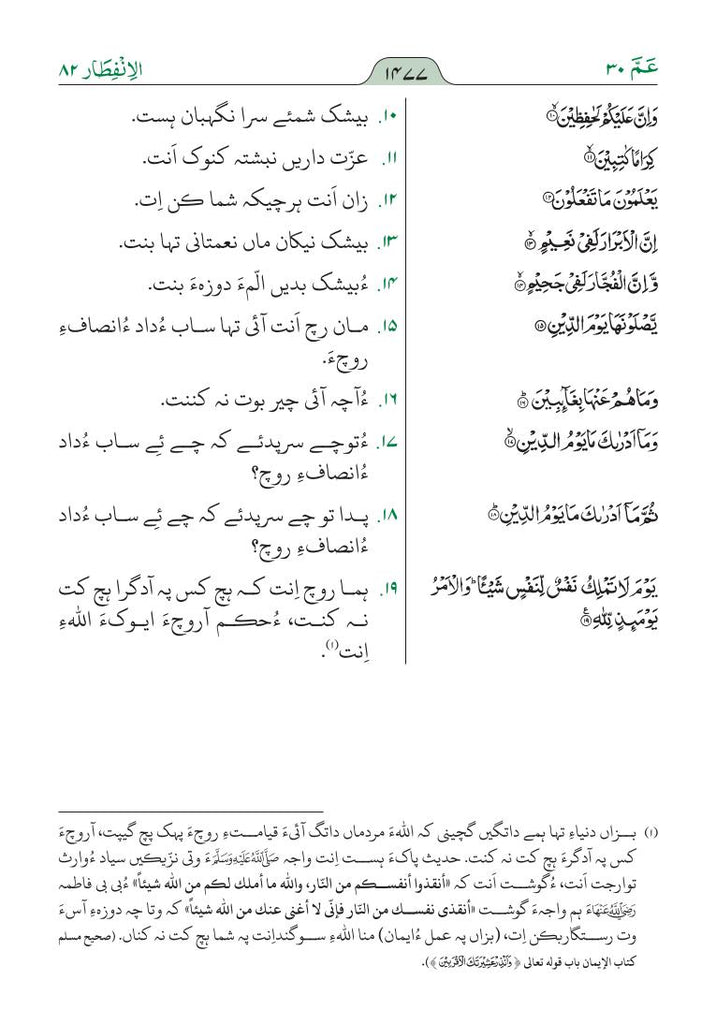 عَمَّ ۳۰
۱۴۷۷
الِانْفِطَار ۸۲
وَاِنَّ عَلَيْكُمْ لَحٰفِظِيْنَ ۙ‏﴿۱۰﴾
۱۰. بیشک شمئے سرا نگھبان ہست.
كِرَامًا كٰتِبِيْنَ ۙ‏﴿۱۱﴾
۱۱. عزّت داریں نبشتہ کنوک اَنت.
يَعْلَمُوْنَ مَا تَفْعَلُوْنَ ﴿۱۲﴾
۱۲. زان اَنت ہرچیکہ شما کن اِت.
اِنَّ الْاَبْرَارَ لَفِيْ نَعِيْمٍ ۚ‏﴿۱۳﴾
۱۳. بیشک نیکان ماں نعمتانی تہا بنت.
وَّ اِنَّ الْفُجَّارَ لَفِيْ جَحِيْمٍ ۚۖ‏﴿۱۴﴾
۱۴. ءُبیشک بدیں الّمءَ دوزہءَ بنت.
يَّصْلَوْنَهَا يَوْمَ الدِّيْنِ ﴿۱۵﴾
۱۵. مـان رچ اَنت آئی تہا سـاب ءُداد ءُانصافءِ
روچءَ.
وَمَا هُمْ عَنْهَا بِغَآىِٕبِيْنَ ؕ‏﴿۱۶﴾
۱۶. ءُآچہ آئی چیر بوت نہ کننت.
وَمَاۤ اَدْرٰىكَ مَا يَوْمُ الدِّيْنِ ۙ‏﴿۱۷﴾
۱۷. ءُتوچـے سرپدئـے کہ چـے ئِے سـاب ءُداد
ءُانصافءِ روچ؟
ثُمَّ مَاۤ اَدْرٰىكَ مَا يَوْمُ الدِّيْنِ ؕ‏﴿۱۸﴾
۱۸. پـدا تو چے سرپدئے کہ چے ئِے سـاب ءُداد
ءُانصافءِ روچ؟
يَوْمَ لَا تَمْلِكُ نَفْسٌ لِّنَفْسٍ شَيْـًٔا ؕ وَالْاَمْرُ
يَوْمَىِٕذٍ لِّلّٰهِ ﴿۱۹﴾
۱۹. ہمـا روچ اِنت کـہ ہچ کس پہ آدگرا ہچ کت
نـہ کنـت، ءُحکـم آروچءَ ایـوکءَ اللهءِ
اِنت⁽۱⁾.
(۱) بـزاں دنیاءِ تہا ہمے داتگیں گچینی کہ اللهءَ مردماں داتگ آئیءَ قیامـتءِ روچءَ پہک پچ گیپت، آروچءَ
کس پہ آدگرءَ ہچ کت نہ کنت. حدیث پاکءَ ہسـت اِنت واجہ ﷺءَ وتی نزّیکیں سیاد ءُوارث
توارجت اَنت، ءُگوشـت اَنت کہ «أنقذوا أنفسـكم من النّار، والله ما أملك لكم من الله شيئاً» ءُبی بی فاطمہ
رَضِيَ اللَّهُ عَنْهَاءَ ہم واجہءَ گوشت «أنقذي نفسـك من النّار فإنّي لا أغني عنك من الله شيئاً» کہ وتا چہ دوزہءِ آسءَ
وت رسـتگاربکن اِت، (بزاں پہ عمل ءُایمان) منا اللهءِ سـوگنداِنت پہ شما ہچ کت نہ کناں. (صحیح مسلم
کتاب الإيمان باب قوله تعالى ﴿وَأَنذِرْ عَشِيرَتَكَ الْأَقْرَبِينَ﴾).